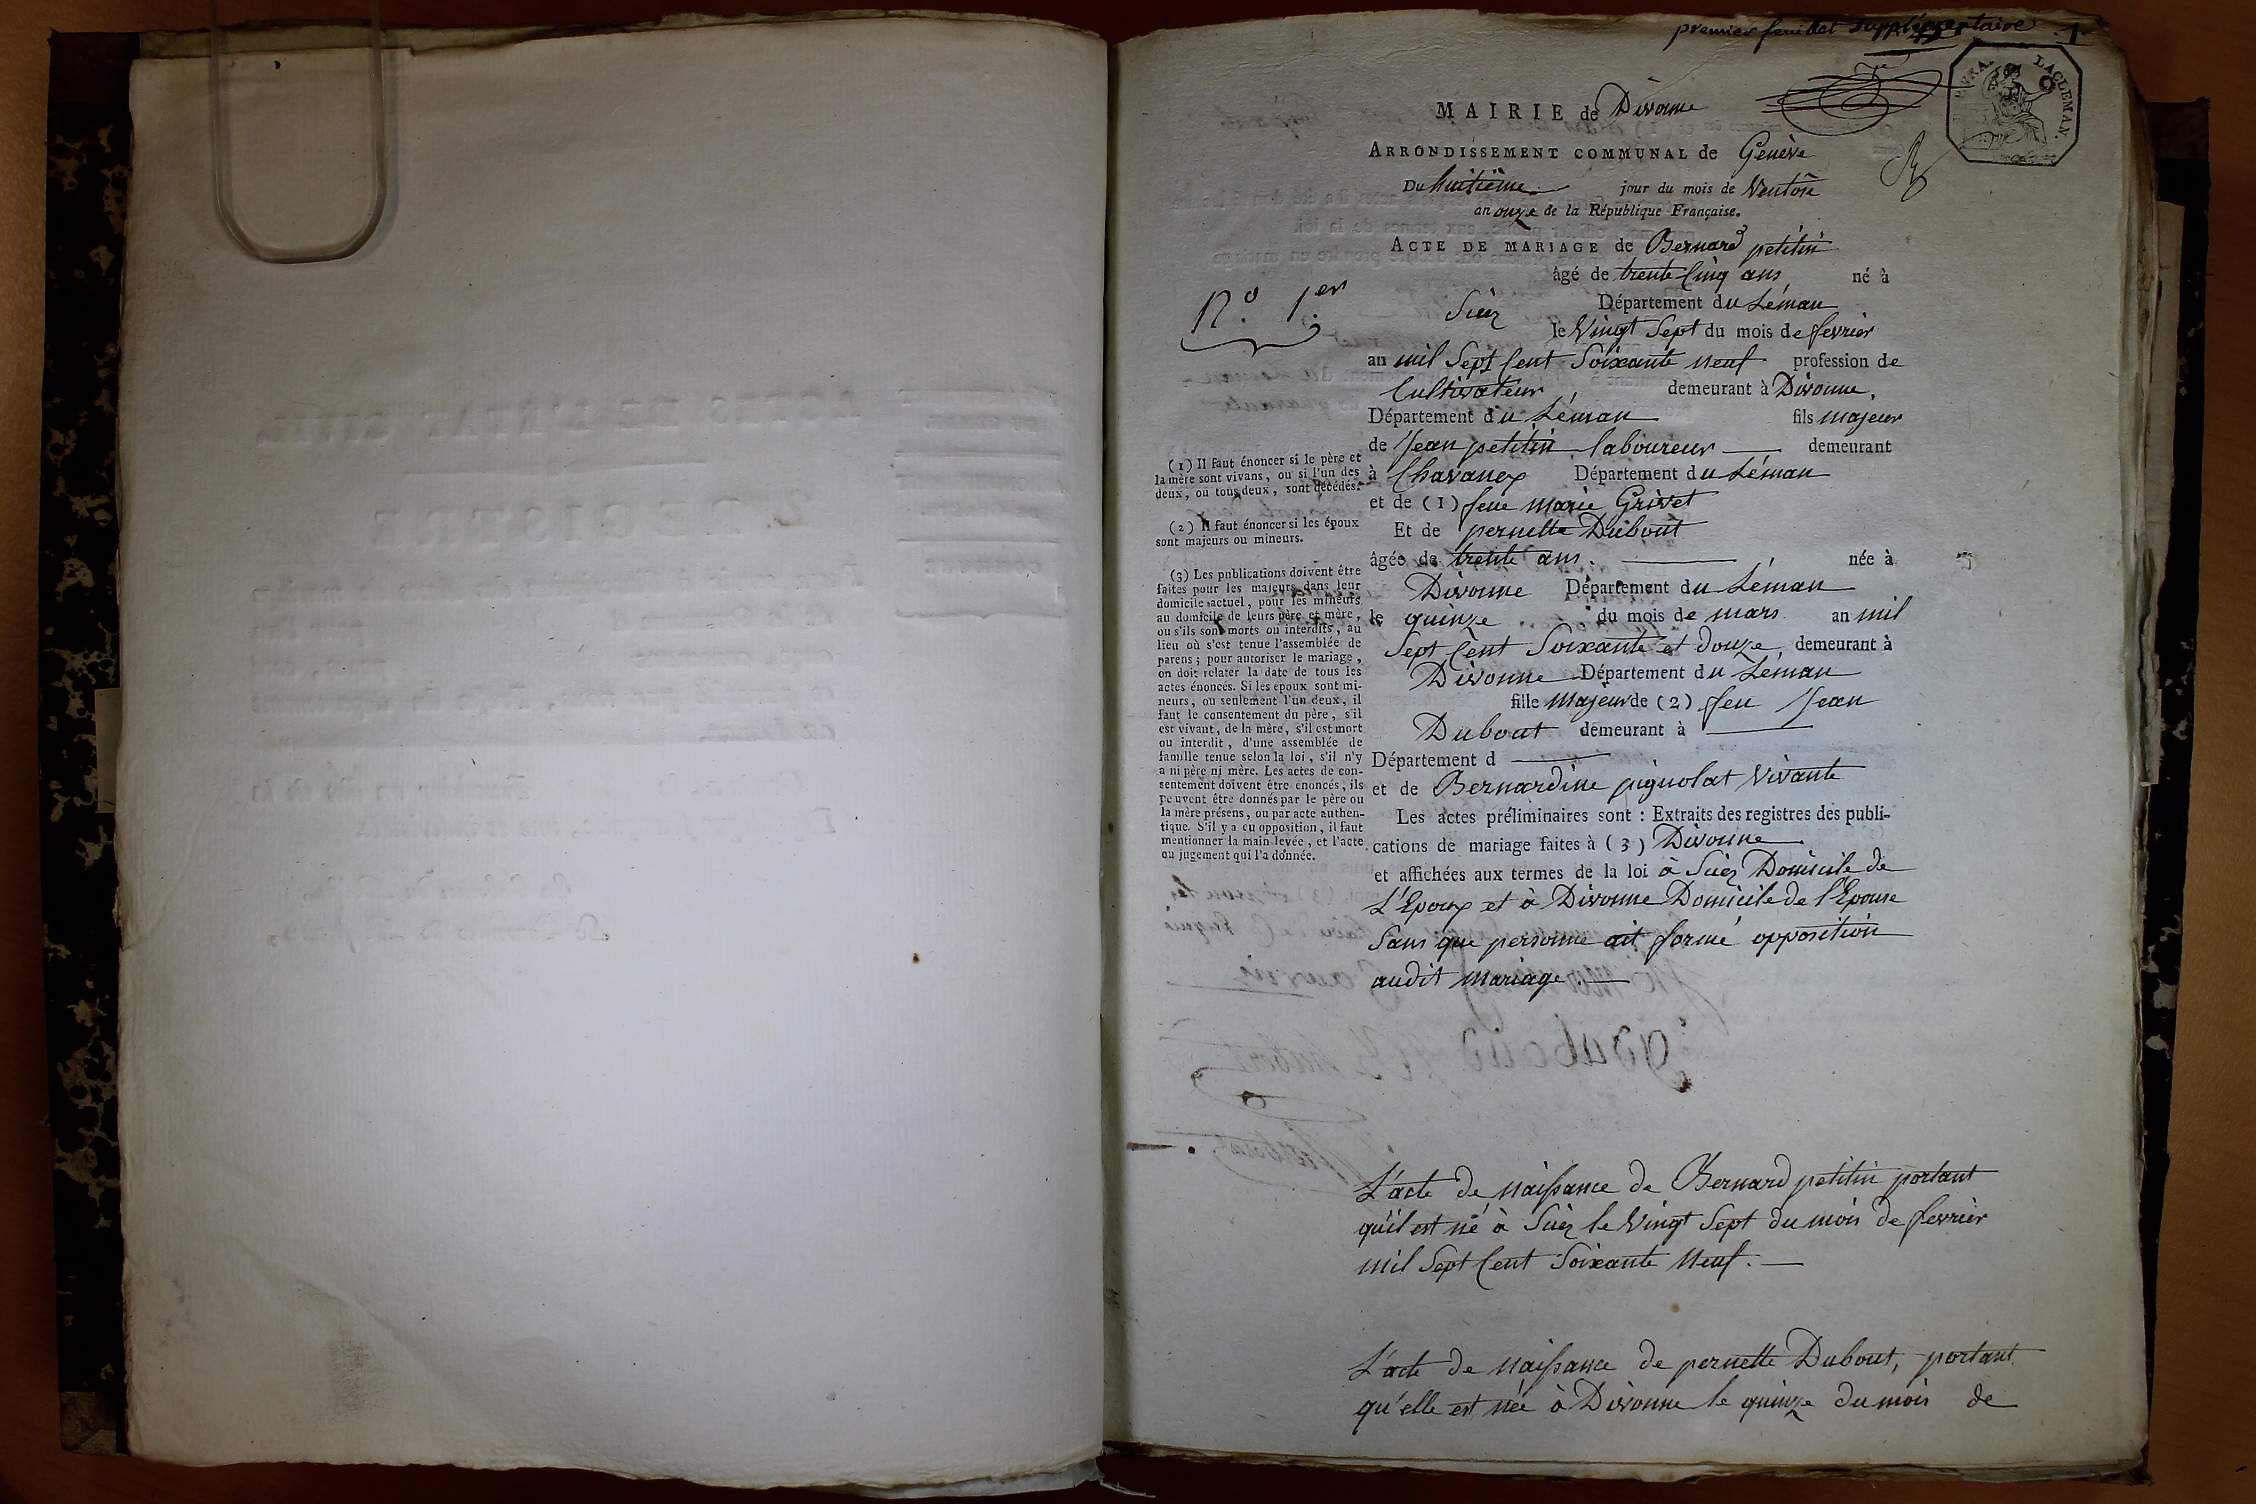 premier feuillet Supplémentaire 1
MAIRIE de Divonne
ARRONDISSEMENT COMMUNAL de Genève
Du huitième jour du mois de Ventôse
an onze de la République Française.
ACTE DE MARIAGE de Bernard petitin
âgé de trente Cinq ans né à
Département du Léman
le Vingt Sept du mois de fevrier
an mil Sept Cent Soixante neuf profession de
Cultivateur demeurant à Divonne,
Département du Léman fils majeur
de Jean petitin laboureur demeurant
à Chavanex Département du Léman
et de (1) feue Marie Grivet
Et de pernette Dubout
âgée de trente ans. née à
Divonne Département du Léman
le quinze du mois de mars an mil
Sept Cent Soixante et douze demeurant à
Divonne Département du Léman
fille majeur de (2) feu Jean
Dubout demeurant à
Département d
et de Bernardine pignolat Vivante
Les actes préliminaires sont : Extraits des registres des publi-
cations de mariage faites à (3) Divonne
et affichées aux termes de la loi à Domicile de
L'Epoux et à Divonne Domicile de l'Epouse
Sans que personne ait formé opposition
audit mariage.
N.º 1.er
(1) Il faut énoncer si le père et
la mère sont vivans, ou si l'un des
deux, ou tous deux, sont décédés.
(2) Il faut énoncer si les époux
sont majeurs ou mineurs.
(3) Les publications doivent être
faites pour les majeurs dans leur
domicile actuel, pour les mineurs
au domicile de leurs père et mère,
ou s'ils sont morts ou interdits, au
lieu où s'est tenue l'assemblée de
parens ; pour autoriser le mariage,
on doit relater la date de tous les
actes énoncés. Si les epoux sont mi-
neurs, ou seulement l'un deux, il
faut le consentement du père, s'il
est vivant, de la mère, s'il est mort
ou interdit, d'une assemblée de
famille tenue selon la loi, s'il n'y
a ni père ni mère. Les actes de con-
sentement doivent être énoncés, ils
peuvent être donnés par le père ou
la mère présens, ou par acte authen-
tique. S'il y a eu opposition, il faut
mentionner la main levée, et l'acte
ou jugement qui l'a donnée.
L'acte de naissance de Bernard petitin portant
qu'il est né à le Vingt Sept du mois de fevrier
mil Sept Cent Soixante Neuf.
L'acte de naissance de pernette Dubout, portant
qu'elle est née à Divonne le quinze du mois de